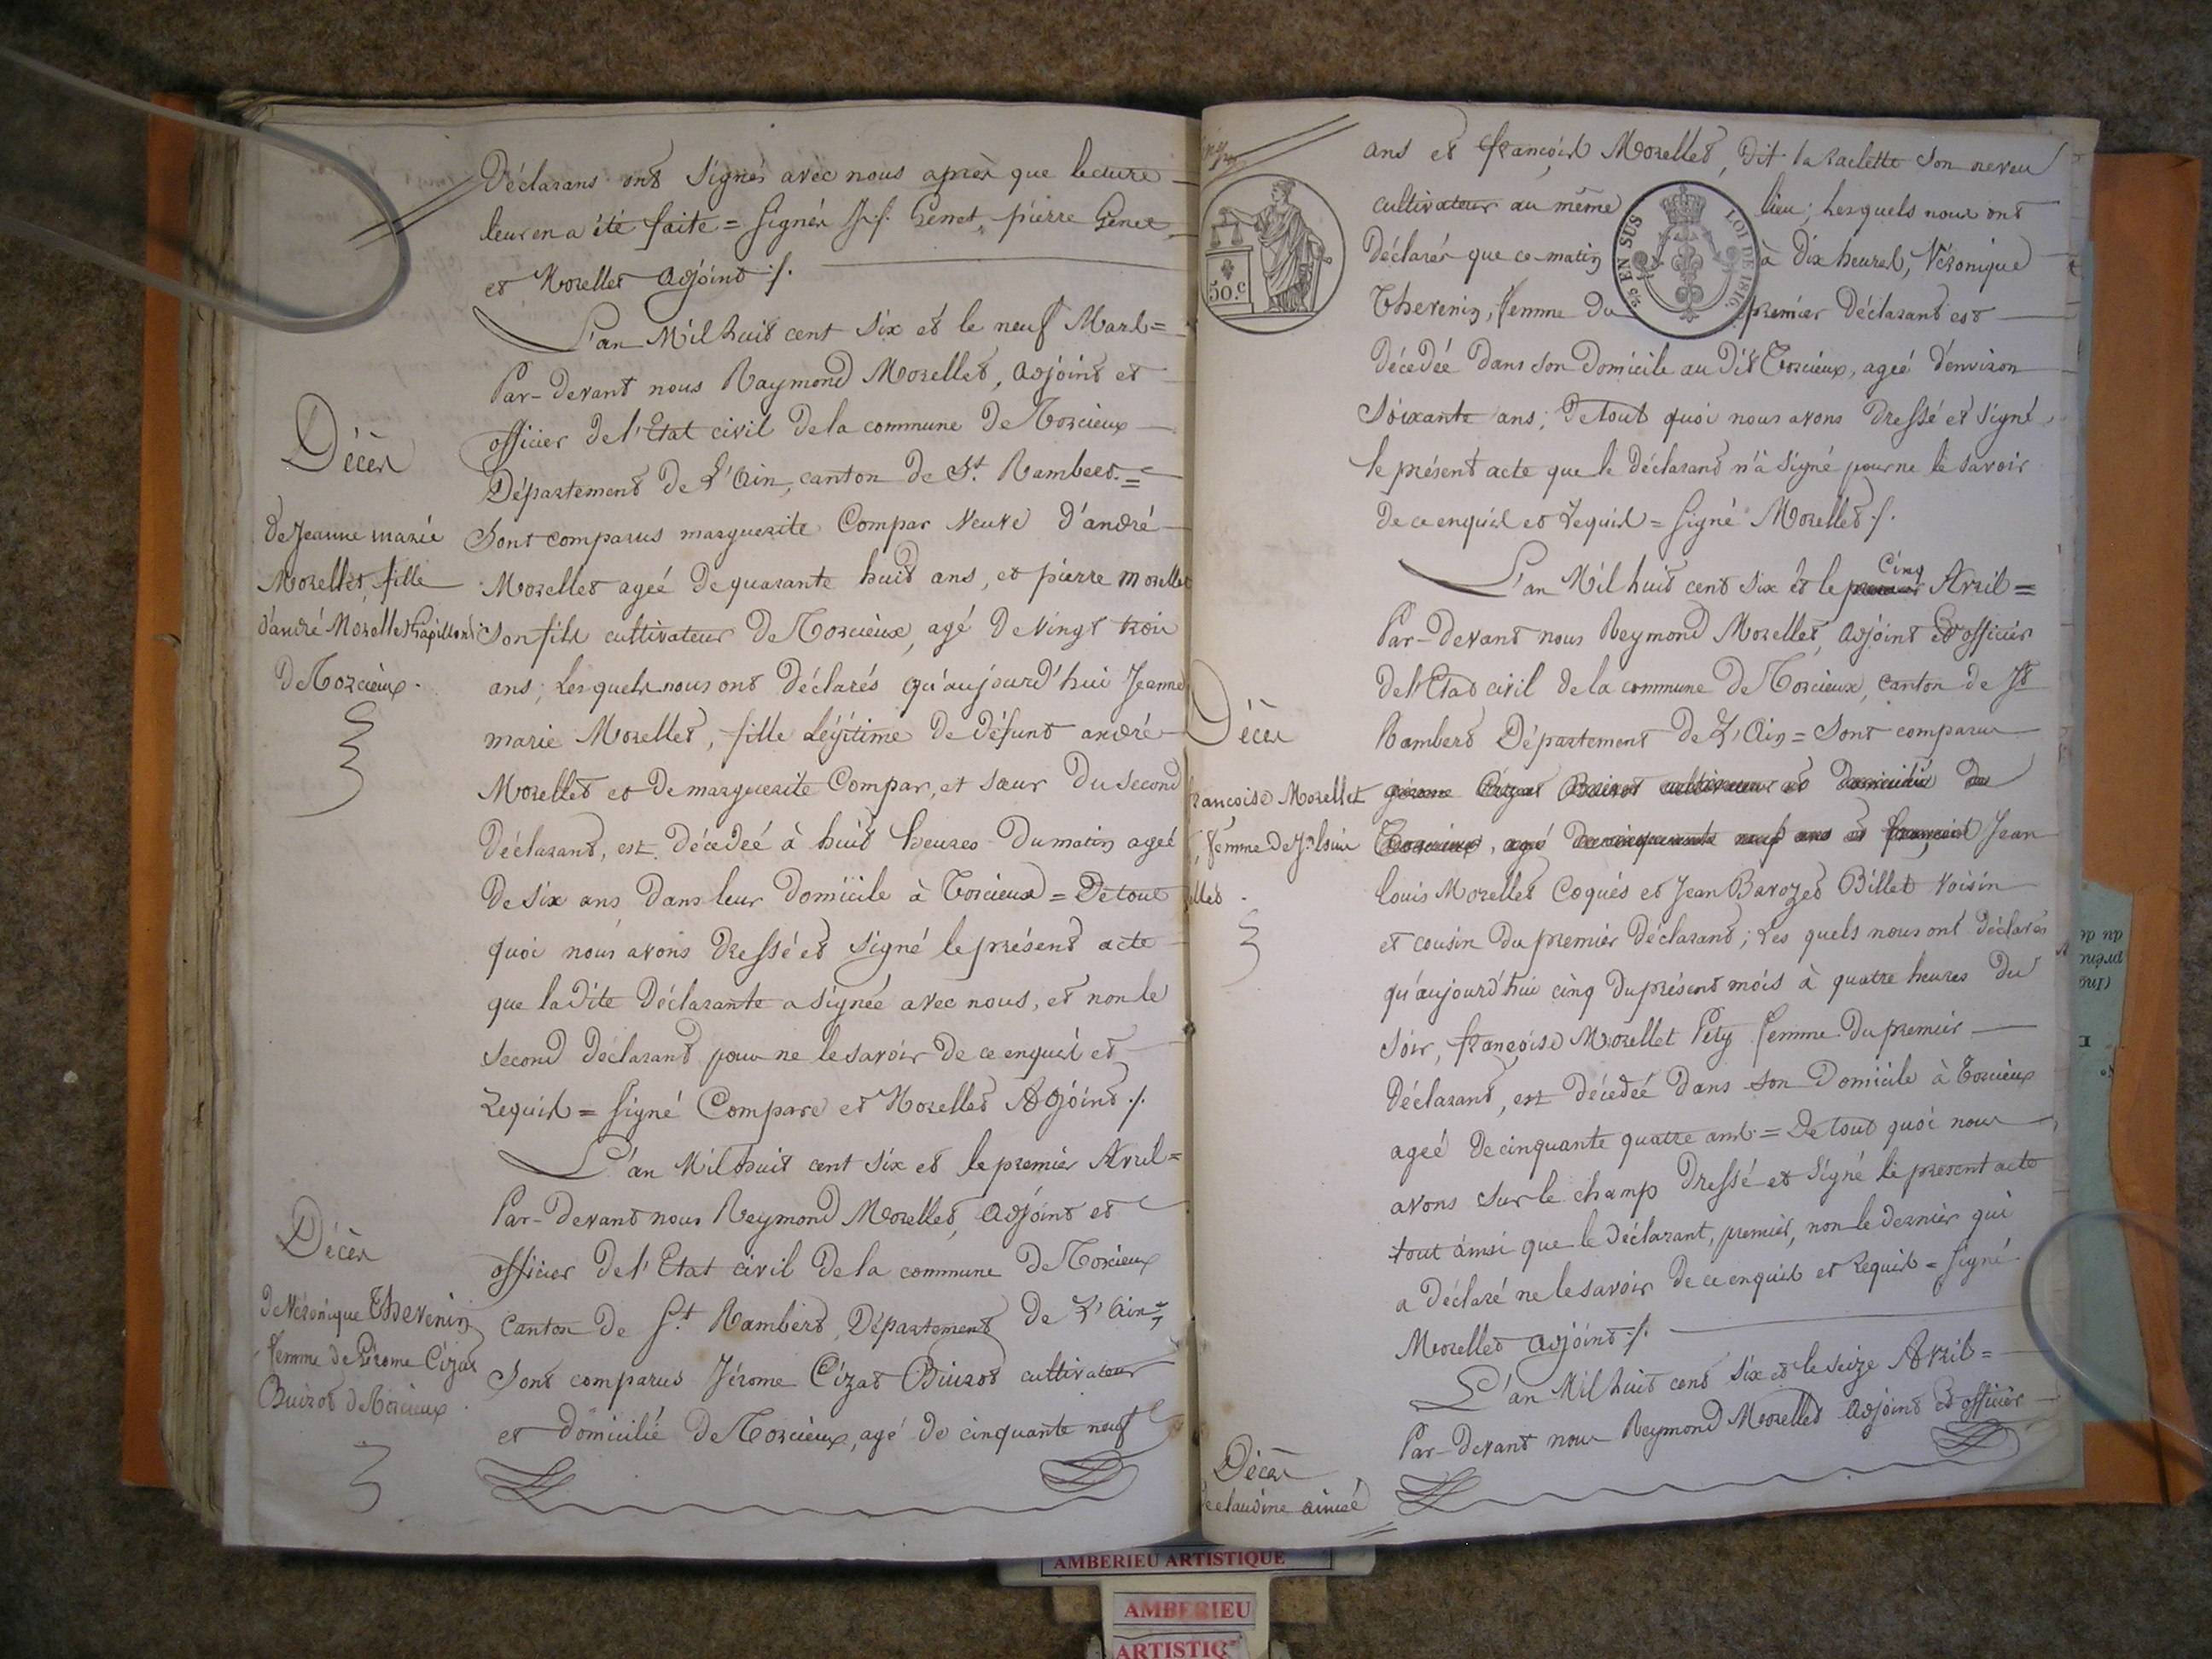 Déclarans ont signés avec nous après que lecture
leur en a été faite = Signés J. f. Genet, pierre Genet
et Morellet adjoint ./.
L'an Mil huit cent six et le neuf Mars =
Par-devant nous Raymond Morellet, adjoint et
officier de l'Etat civil de la commune de Torcieux
Département de L'Ain, canton de St. Rambert =
Décès
de Jeanne marie
Morellet, fille
d'andré Morellet Papillon
de Torcieux.
Sont comparus marguerite Compar veuve d'andré
Morellet agée de quarante huit ans, et pierre Morellet
son fils cultivateur de Torcieux, agé de vingt trois
ans; Lesquels nous ont déclarés qu'aujourd'hui Jeanne
marie Morellet, fille Légitime de défunt andré
Morellet et de marguerite Compar, et sœur du second
déclarant, est décédée à huit heures du matin agée
de six ans dans leur domicile à Torcieux = De tout
quoi nous avons dressé et signé le présent acte
que la dite déclarante a signée avec nous, et non le
second déclarant pour ne le savoir de ce enquis et
Requis = Signé Compare et Morellet Adjoint ./.
L'an Mil huit cent six et le premier Avril =
Par-devant nous Reymond Morellet, adjoint et
officier de l'Etat civil de la commune de Torcieux
canton de St. Rambert, Département de L'Ain =
Décès
de Véronique Thevenin
femme de Jérome Cizat
Buirot de Torcieux.
Sont comparus Jérome Cizat Buirot cultivateur
et domicilié de Torcieux, agé de cinquante neuf
ans et françois Morellet, dit la raclette son neveu
cultivateur au même lieu; Lesquels nous ont
déclarés que ce matin à dix heures, Véronique
Thevenin, femme du premier déclarant est
50.c
EN SUS
LOI DE 1816
décédée dans son domicile au dit Torcieux, agée d'environ
soixante ans; De tout quoi nous avons dressé et signé
le présent acte que le déclarant n'a signé pour ne le savoir
de ce enquis et Requis = Signé Morellet ./.
Cinq
L'an Mil huit cent six et le premier Avril =
Par-devant nous Reymond Morellet, adjoint et officier
de l'Etat civil de la commune de Torcieux, canton de St
Rambert Département de L'Ain = Sont comparus
Décès
françoise Morellet
femme de Jn. Louis
gérome Cizat Buirot cultivateur et domicilié de
Torcieux, agé de cinquante neuf ans et françois Jean
Louis Morellet Coqués et Jean Barozet Billet voisin
et cousin du premier déclarant; Les quels nous ont déclarés
qu'aujourd'hui cinq du présent mois à quatre heures du
soir, françoise Morellet Pety femme du premier
déclarant, est décédée dans son domicile à Torcieux
agée de cinquante quatre ans = De tout quoi nous
avons sur le champ dressé et signé le present acte
tout ainsi que le déclarant, premier, non le dernier qui
a déclaré ne le savoir de ce enquis et Requis = Signé
Morellet adjoint ./.
L'an Mil huit cent six et le seize Avril =
Par-devant nous Reymond Morellet adjoint et officier
Décès
de claudine aimée
AMBERIEU ARTISTIQUE
AMBERIEU
ARTISTIQ